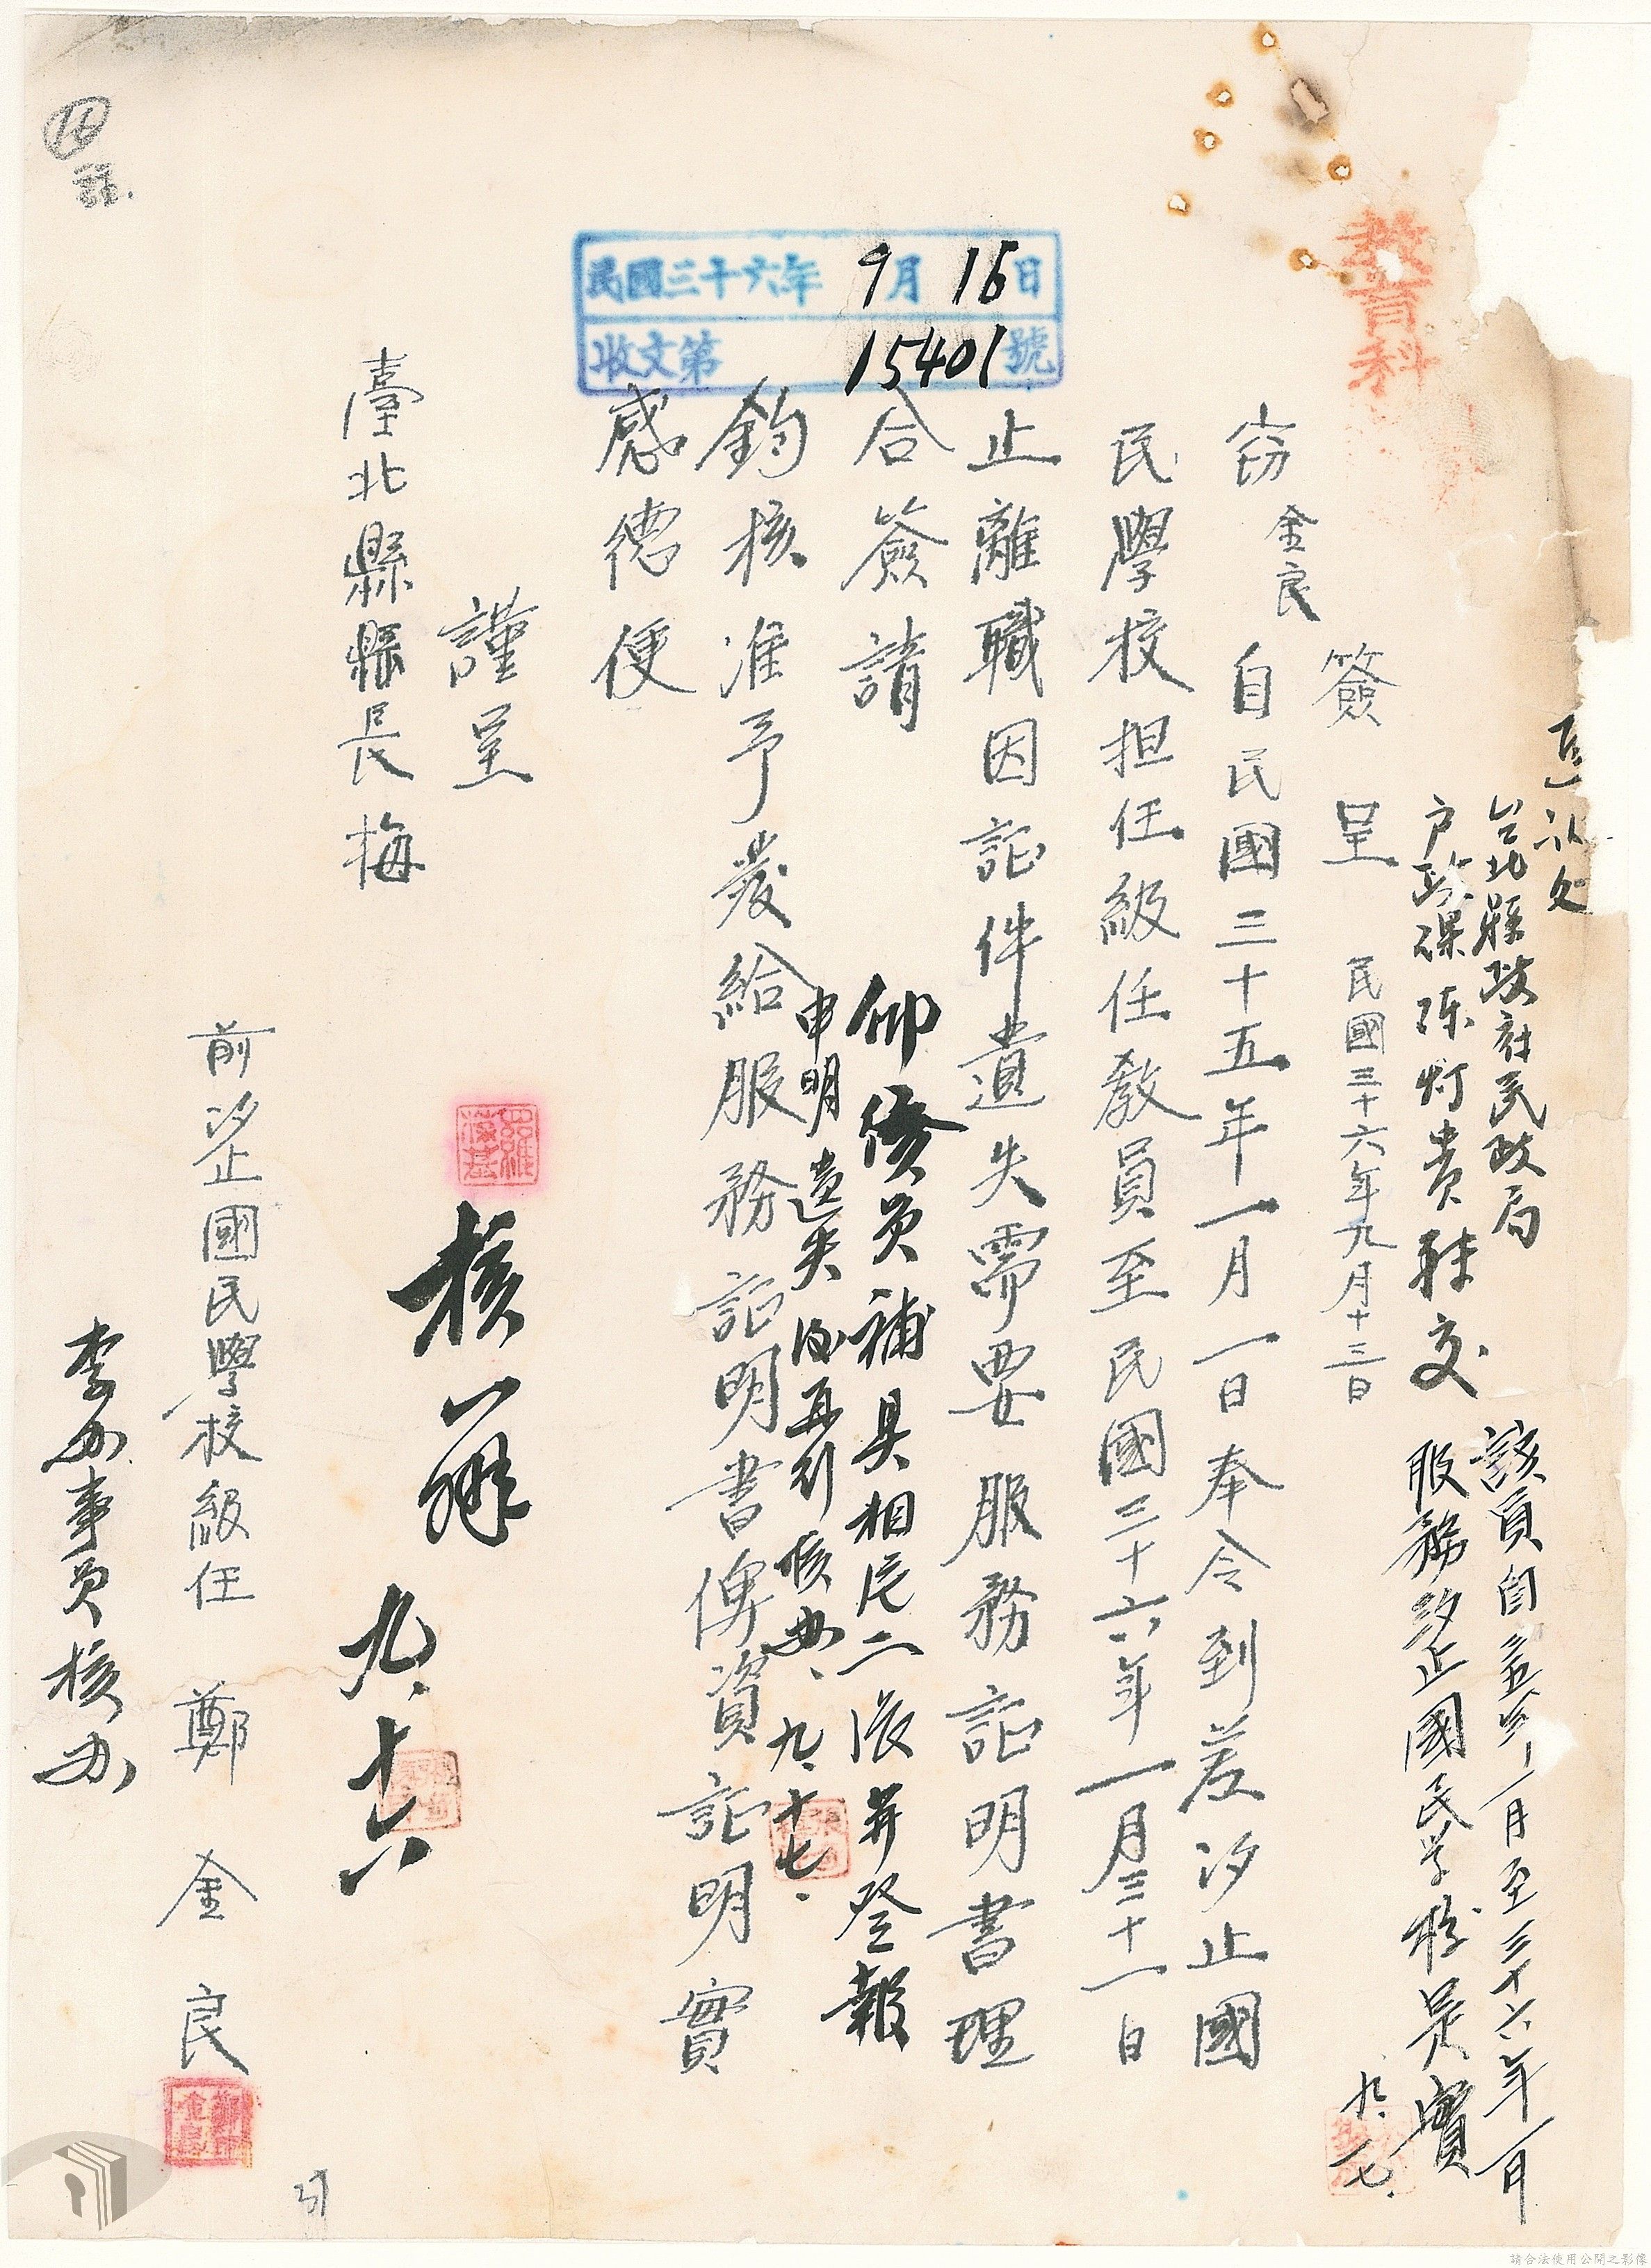 教育科
台北縣政府民政局
戶政課陈灯贵轉交
該員自三五年一月至三十六年一月
服務汐止國民学校是實
九、一七、
簽呈 民國三十六年九月十三日
窃金良自民國三十五年一月一日奉令到差汐止國
民學校担任級任教員至民國三十六年一月三十一日
止離職因証件遺失需要服務証明書理
合簽請
鈞核准予發給服務証明書俾資証明實
感德便
謹呈
臺北縣縣長梅
前汐止國民學校級任 鄭金良
民國三十六年9月16日
收文第15401號
仰該員補具相片二張并登報
申明遺失后再行核办、九、十七、
核辦 九、十六
李办事员核办
請合法使用公開之影像